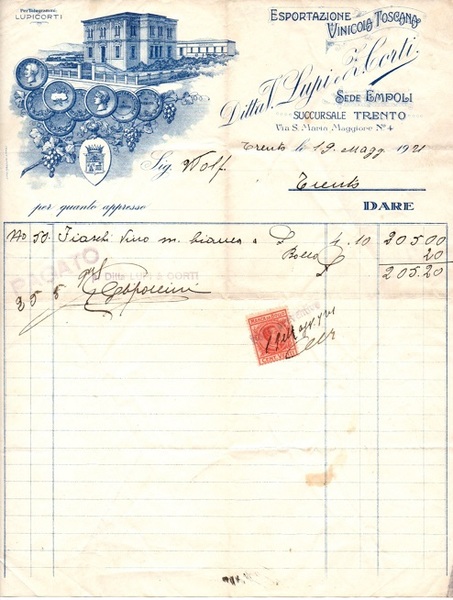 Per Telegrammi:
LUPICORTI
ESPORTAZIONE
VINICOLA TOSCANA
Ditta V. Lupi & Corti
SEDE EMPOLI
SUCCURSALE TRENTO
Via S. Maria Maggiore No 4
Trento li 19 Magg. 1921
Sig. Wolf.
Trento
per quanto appresso
DARE
No 50. Fiaschi Vino m. bianco a £ 4.10 205.00
Bollo 20
£ 205.20
PAGATO
Ditta LUPI & CORTI
25 5
MARCA DA BOLLO
CENT.